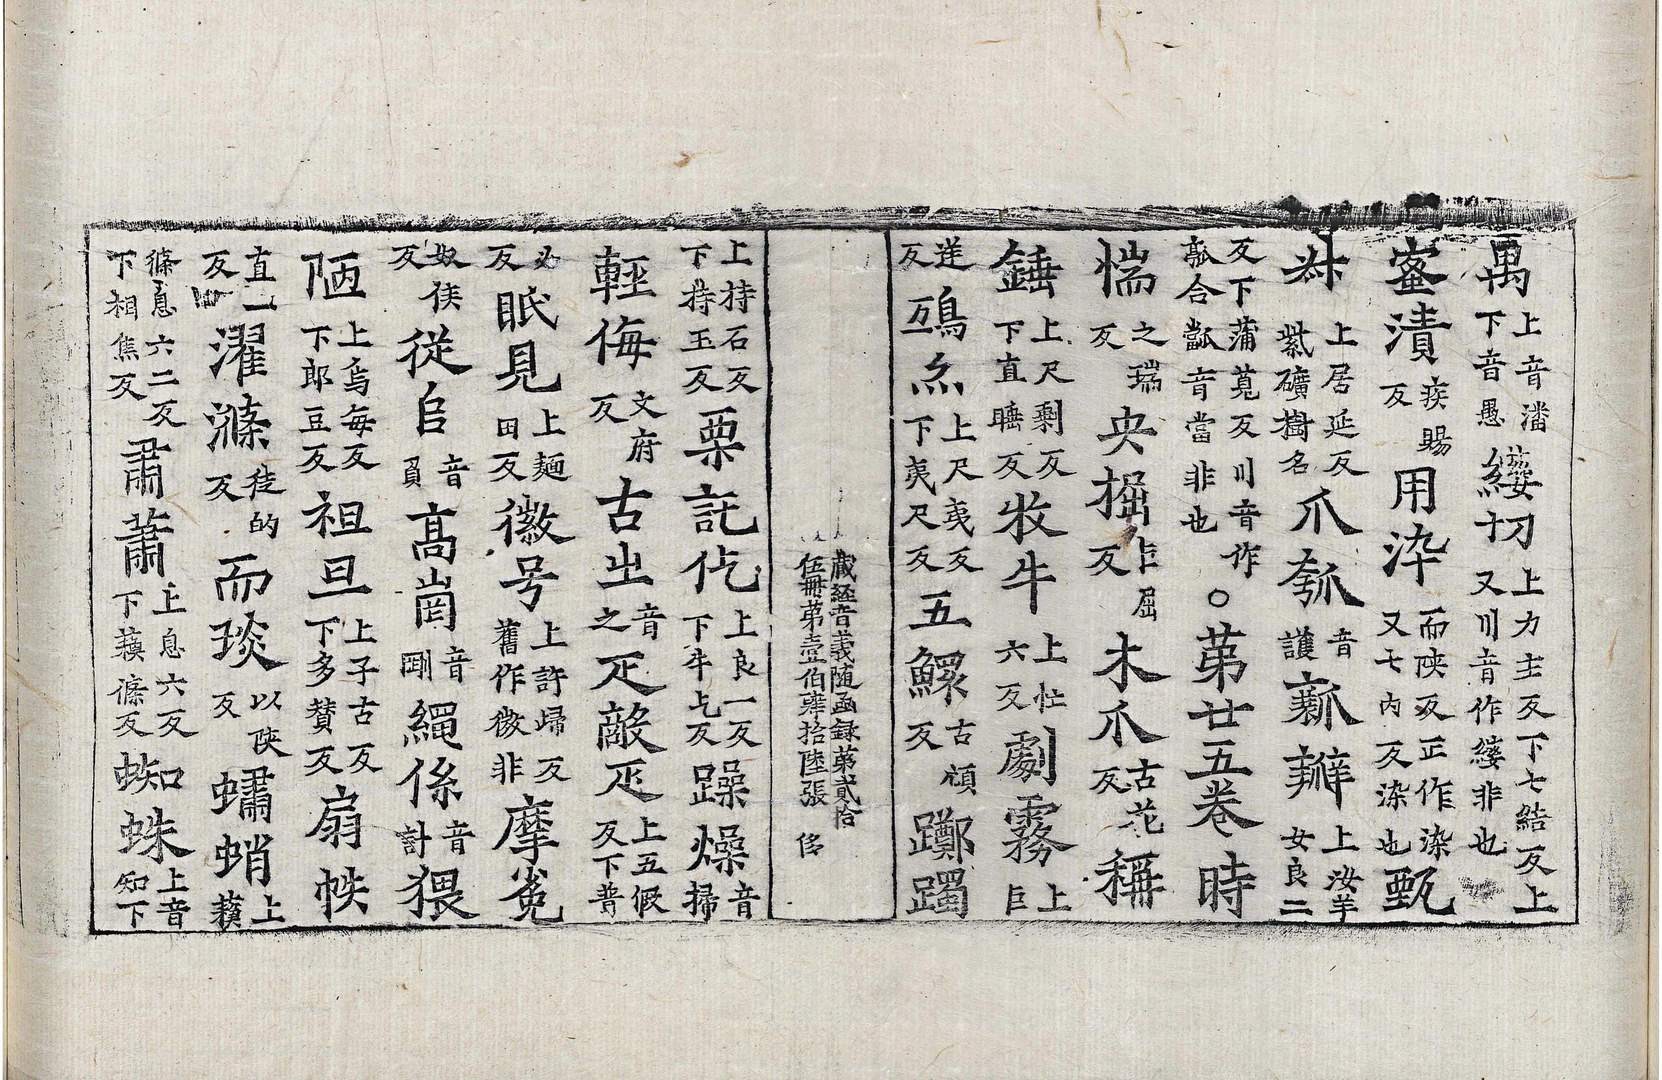 禺上音潘下音愚縷切上力主反下七結反上又川音作縷非也
蜜漬疾賜反用㳃而陝反正作染又七內反染也甄
上居延反紫礦樹名爪瓠音護瓣上汝羊女良二
反下蒲莧反川音作瓠合音當非也○第廿五卷時
惴之瑞反央掘巨屈反木爪古花反稱
錘上尺剩反下直睡反牧牛上忙六反劇霧上巨
逆反鵄上尺夷反下夷尺反五鰥古頑反躑躅
藏経音義随函録第貳拾
伍冊第壹伯肆拾陸張 侈
上持石反下持玉反栗託仡上良一反下牛乞反躁燥音掃
輕侮文府反古㞢音之疋敵疋上五假反下普
必反眂見上麵田反徽号上許歸反舊作微非摩㝹
奴侯反從𠂤音負髙崗音剛繩係音計猥
陋上烏每反下郎豆反祖旦上子古反下多贊反扇帙
直一反濯滌徒的反而琰以陝反蟰蛸上蘓
篠息六二反下相焦反肅蕭上息六反下蘓篠反蜘蛛上音知下